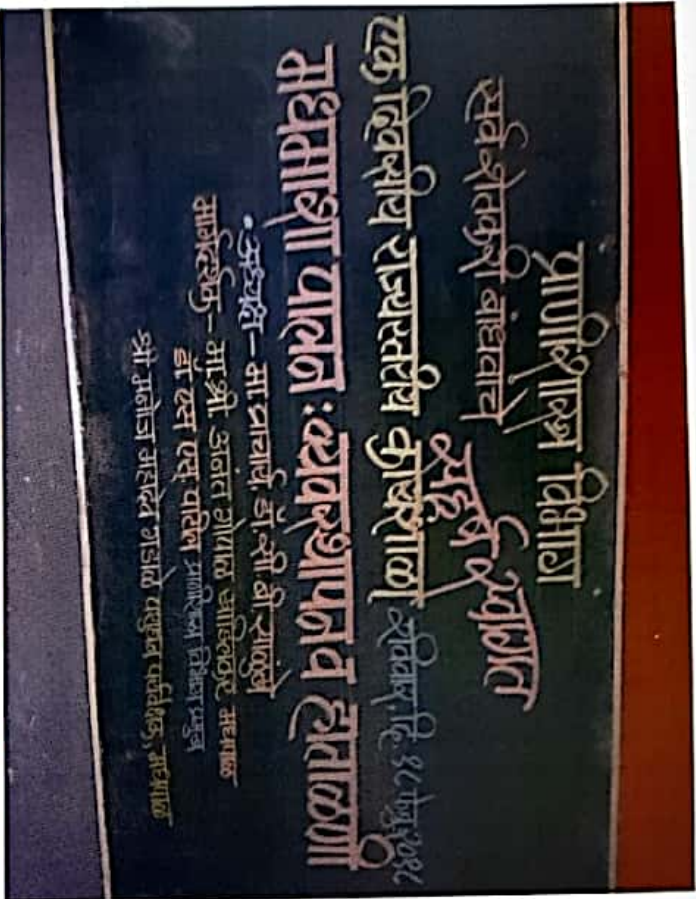 प्राणिशास्त्र विभाग
सर्व शेतकरी बांधवांचे
सहर्ष स्वागत
एक दिवसीय राज्यस्तरीय कार्यशाळा रविवार, दि. १८ फेब्रु. २०१८
मधमाश्या पालन : व्यवस्थापन व हाताळणी
• अध्यक्ष - मा. प्राचार्य. डॉ. सी. बी. साळुंखे
मार्गदर्शक - मा. श्री. अनंत गोपाळ
डॉ. एस. एस. पाटील प्राणिशास्त्र विभाग प्रमुख
श्री महादेव